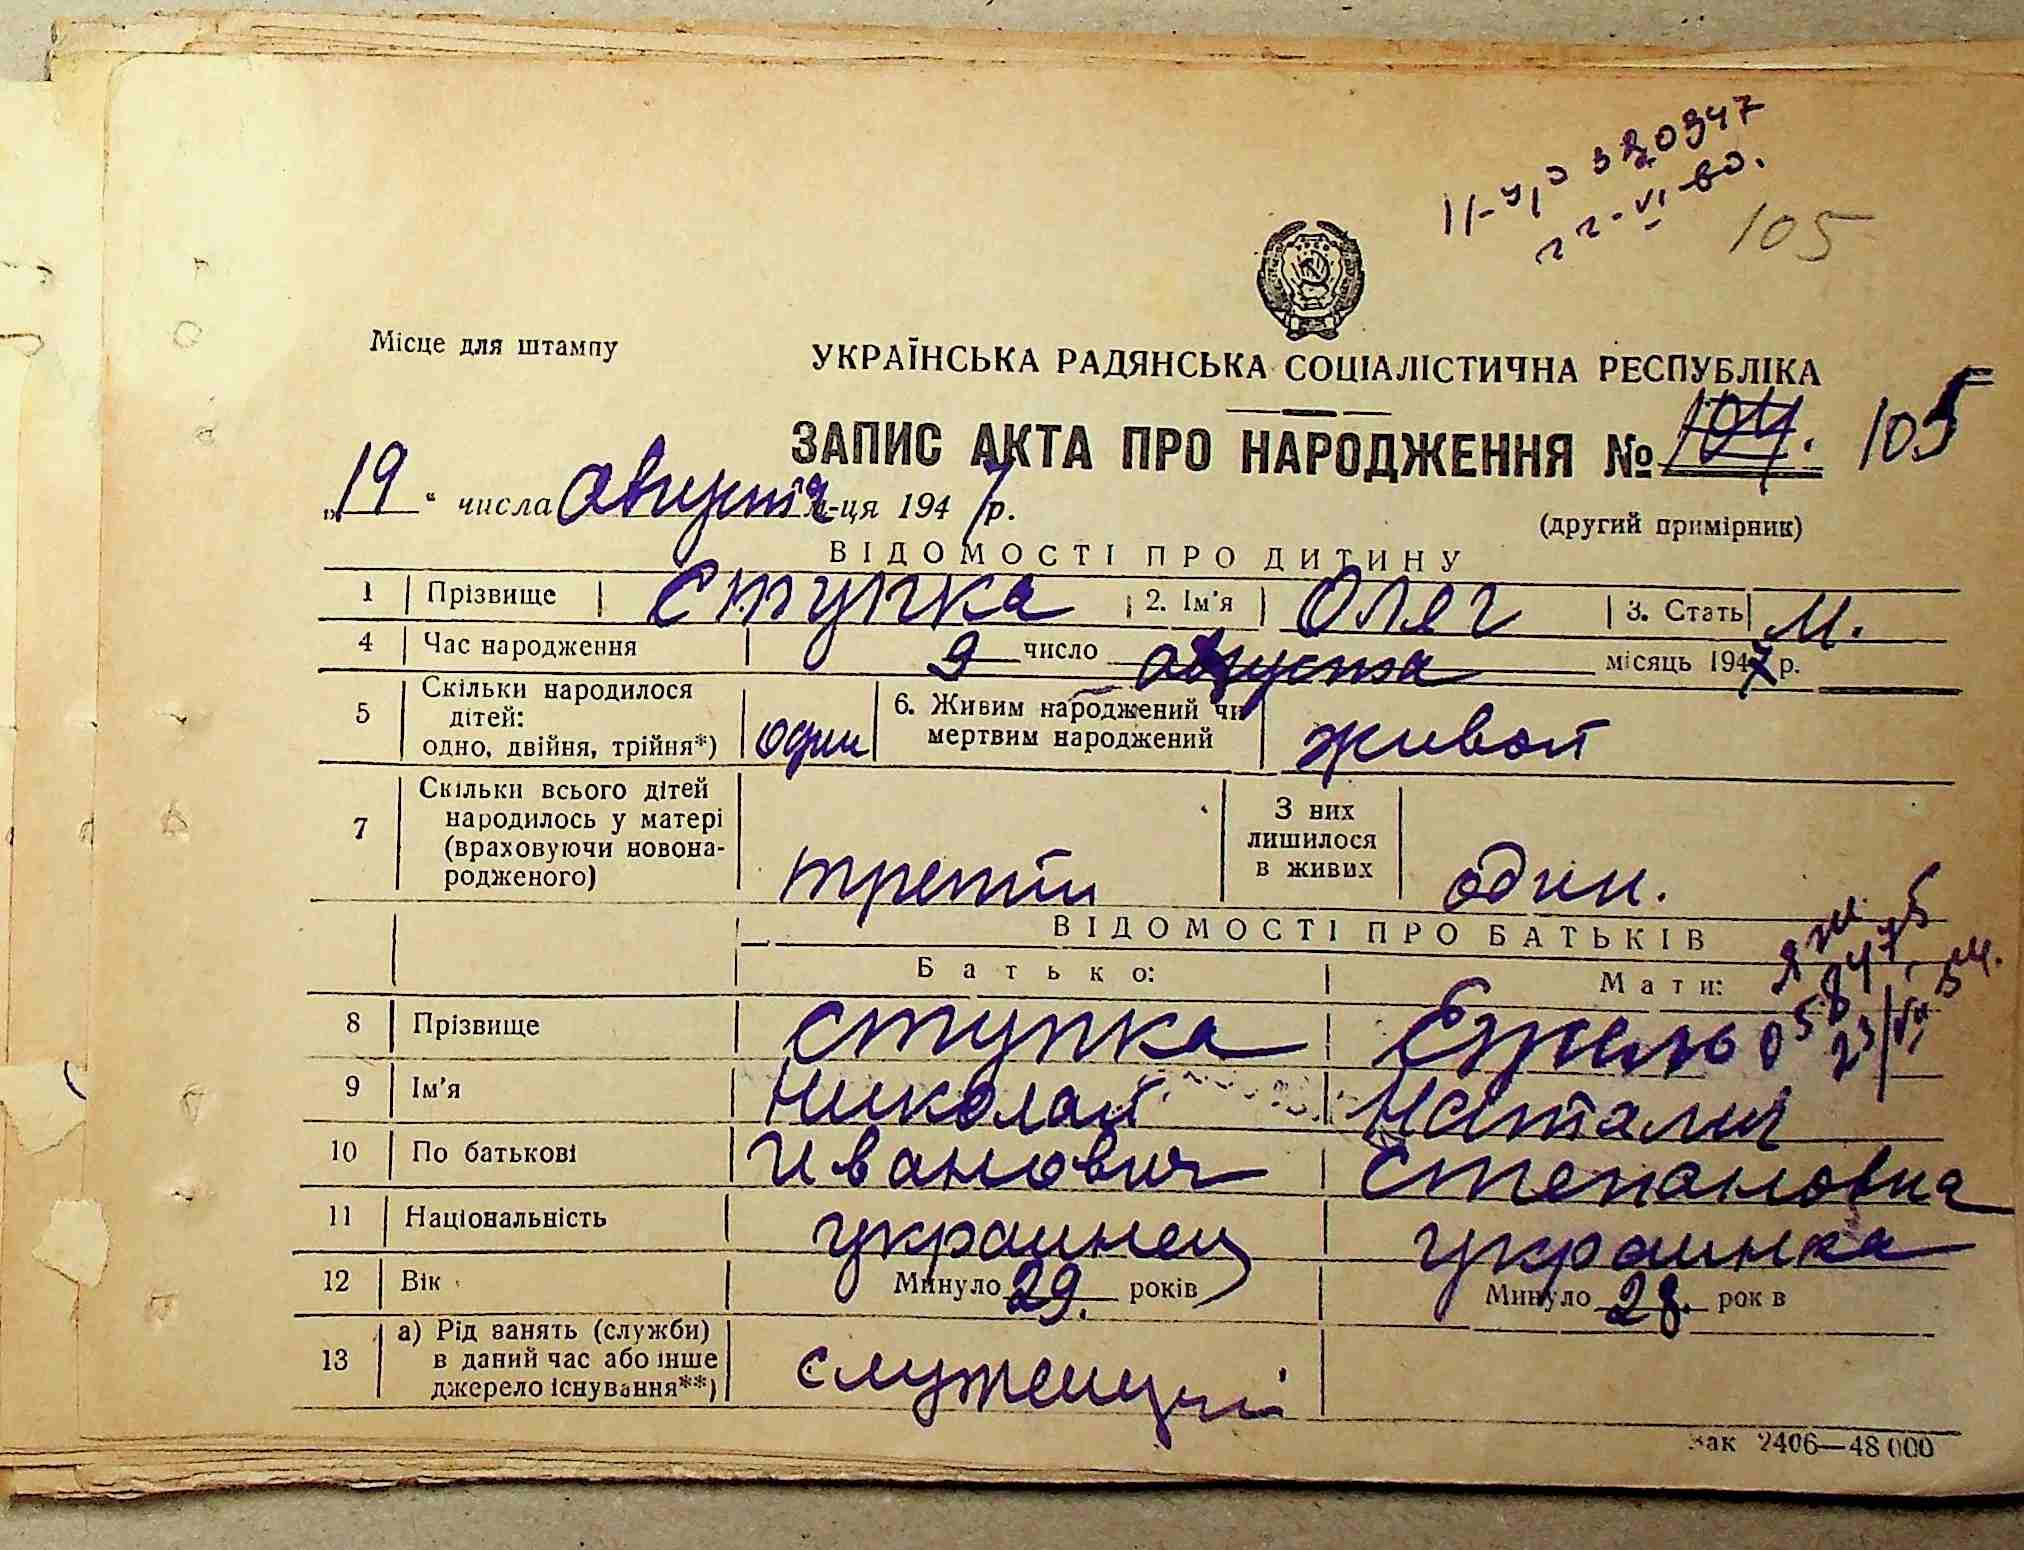 320347
105
Місце для штампу
УКРАЇНСЬКА РАДЯНСЬКА СОЦІАЛІСТИЧНА РЕСПУБЛІКА
ЗАПИС АКТА ПРО НАРОДЖЕННЯ № 104. 105
„19“ числа августа м-ця 1947 р.
(другий примірник)
ВІДОМОСТІ ПРО ДИТИНУ
1 Прізвище Ступка 2. Ім'я Олег 3. Стать М.
4 Час народження 9 число августа місяць 1947 р.
5 Скільки народилося дітей: одно, двійня, трійня*) один 6. Живим народжений чи мертвим народжений живой
7 Скільки всього дітей народилось у матері (враховуючи новонародженого) третій З них лишилося в живих один.
ВІДОМОСТІ ПРО БАТЬКІВ
Батько: Мати:
8 Прізвище Ступка
9 Ім'я Николай Наталия
10 По батькові Иванович Степановна
11 Національність украинец украинка
12 Вік Минуло 29. років Минуло 28. рок в
13 а) Рід занять (служби) в даний час або інше джерело існування**) служещий
Зак 2406—48 000